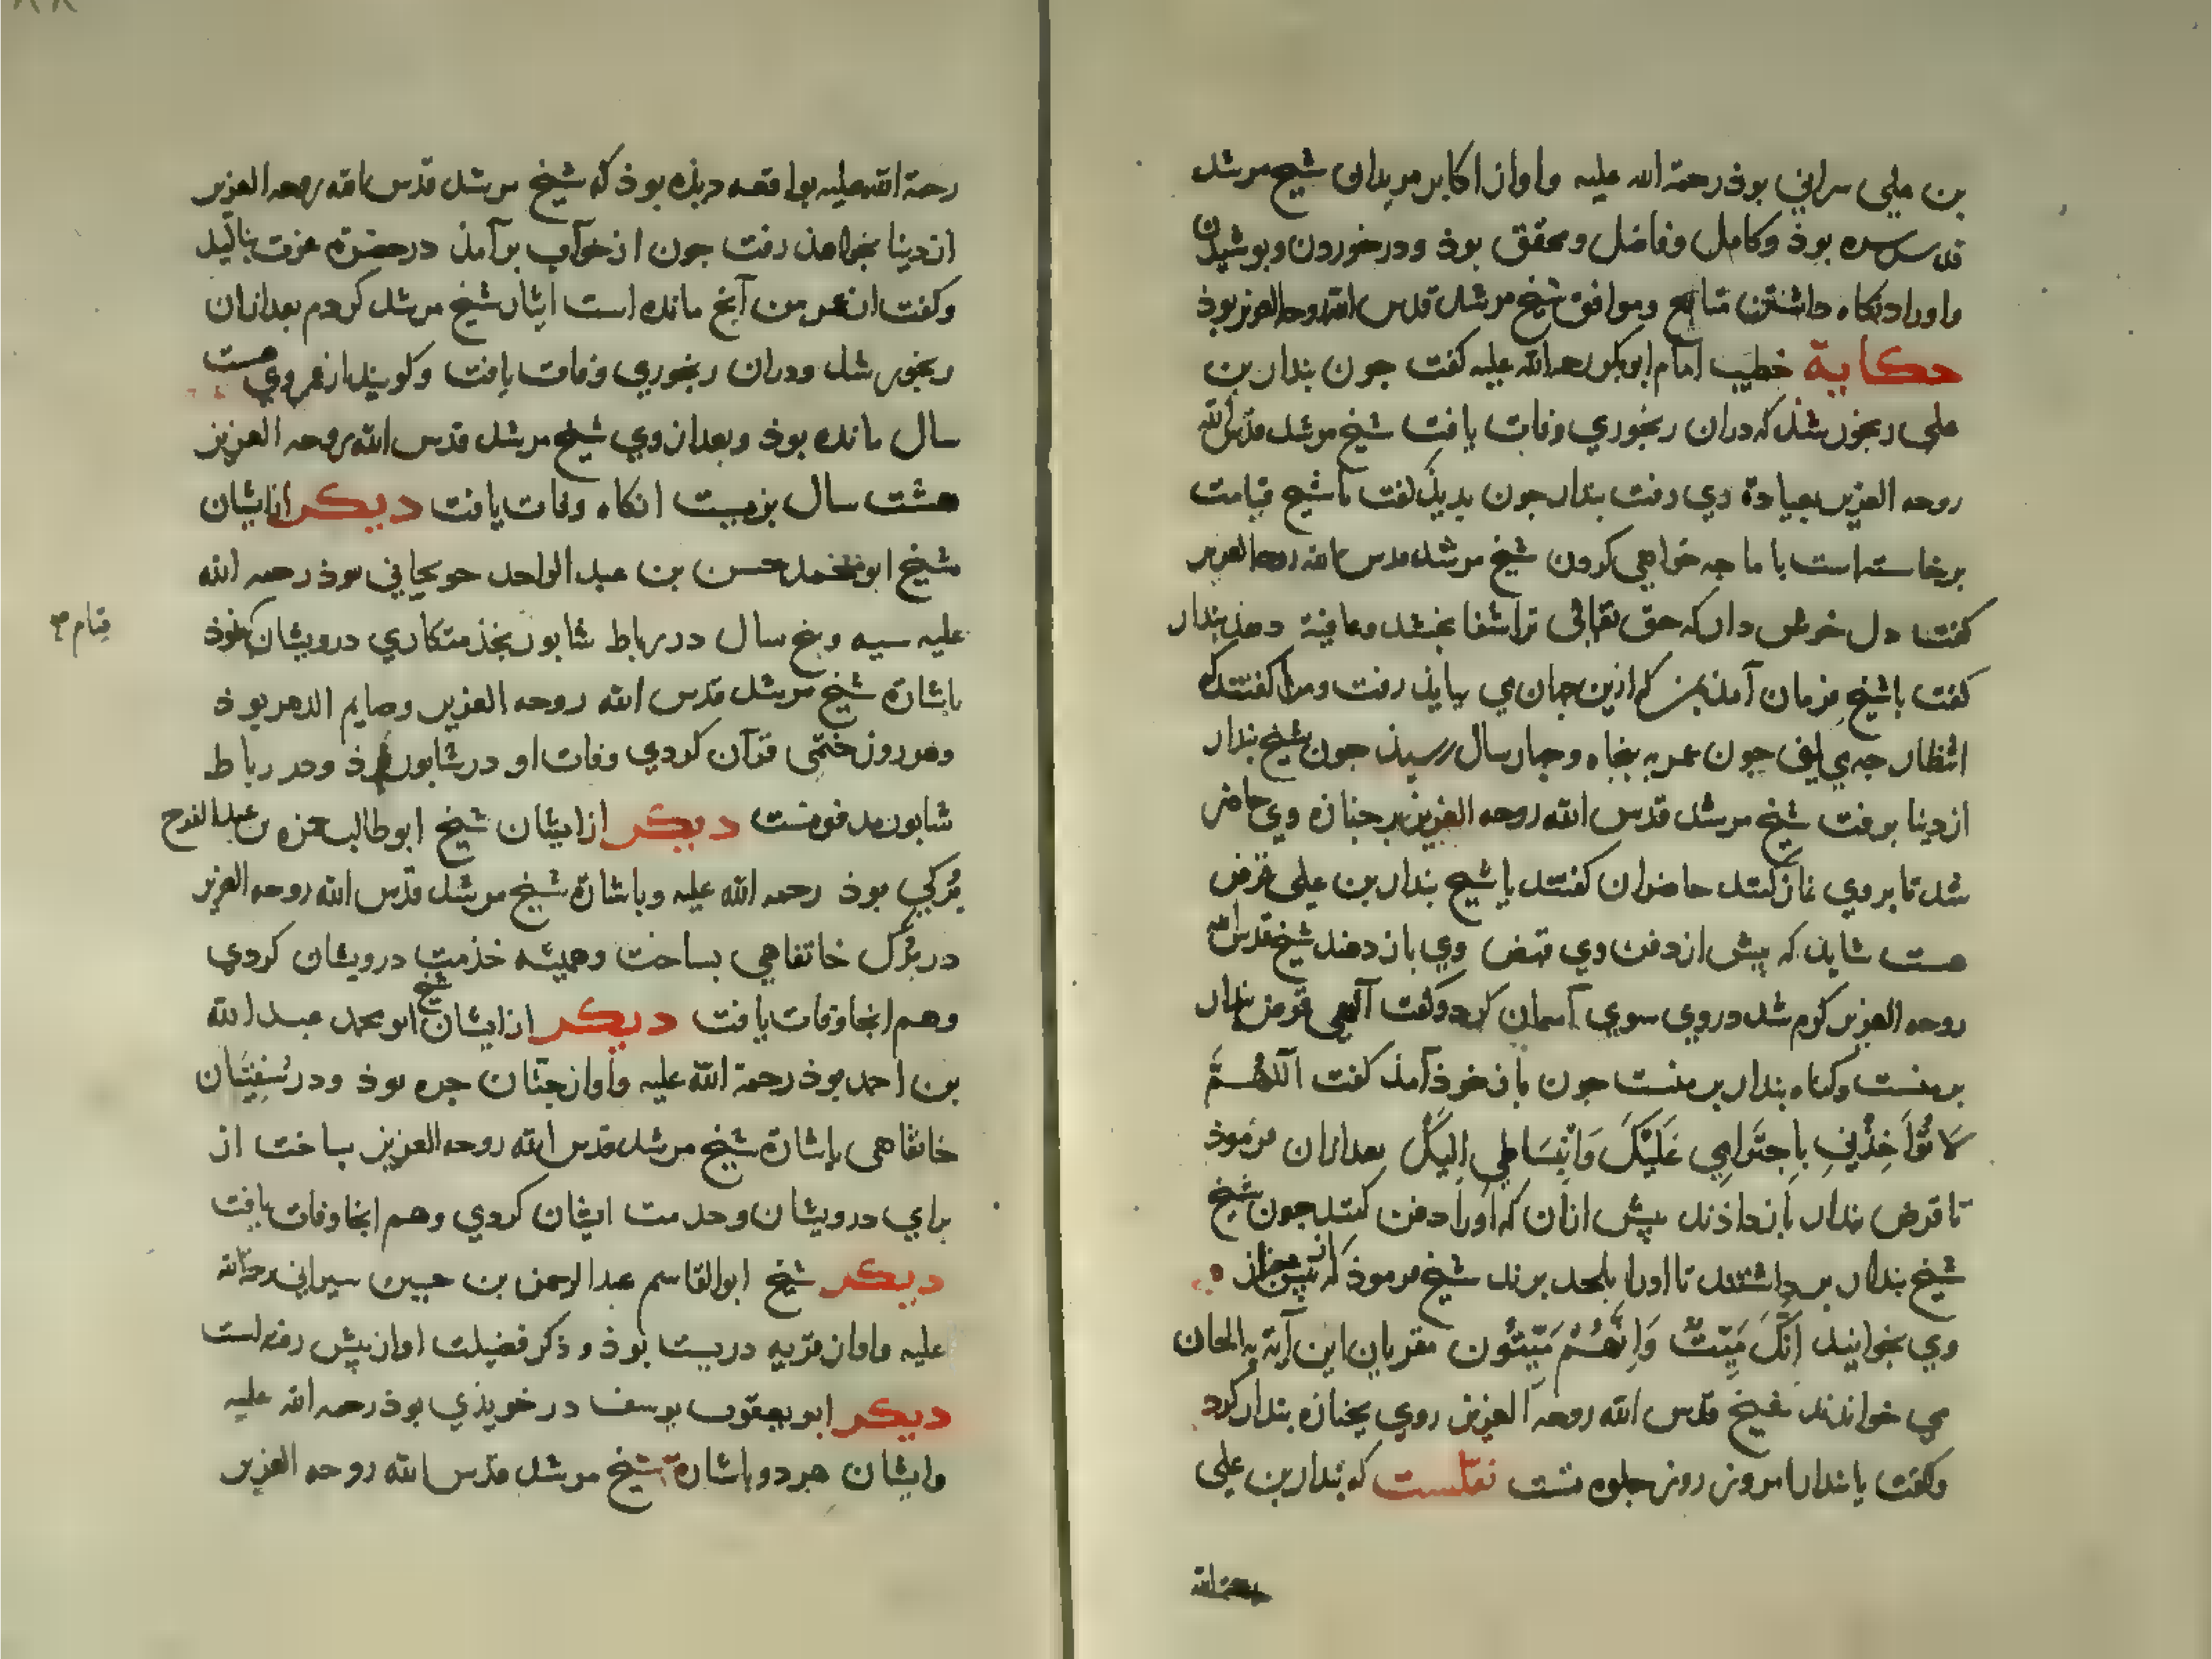 بن علی سرافی بوذ رحمة الله علیه واو از اکابر مریدان شیخ مرشد
قدس سره بوذ وکامل وفاضل ومحقق بوذ ودر خوردن وبوشیدن
واوراد نکاه داشتن متابع وموافق شیخ مرشد قدس الله روحه العزیز بوذ
حکایة خطیب امام ابوبکر رحمة الله علیه کفت جون بندار بن
علی رنجور شذ که دران رنجوری وفات یافت شیخ مرشد قدس الله
روحه العزیز بعیادة وی رفت بندار جون بدیذ کفت یا شیخ قیامت
برخاسته است با ما جه خواهی کردن شیخ مرشد قدس الله روحه العزیز
کفت دل خوش دار که حق تعالی ترا شفا بخشد وعافیة دهذ بندار
کفت یا شیخ فرمان آمذ بمن که ازین جهان می بباید رفت ومرا کفتند که
انتظار جه می جون عمر به بنجاه وجهار سال رسیذ جون شیخ بندار
از دنیا برفت شیخ مرشد قدس الله روحه العزیز بر جنازه وی حاضر
شد تا بر وی نماز کنند حاضران کفتند یا شیخ بندار بن علی قرض
هست شاید که پیش از دفن وی قرض وی باز دهند شیخ قدس الله
روحه العزیز کرم شد وروی سوی آسمان کرد وکفت الهی قرض بندار
بر منست وکناه بندار بر منست جون با خوذ آمذ کفت اللهم
لا تؤاخذني باجترایي علیک وانبساطي الیک بعد ازان فرموذ
تا قرض بندار باز داذند پیش ازان که اورا دفن کنند جون شیخ
شیخ بندار بر داشتند تا اورا بلحد برند شیخ فرموذ که پیش جنازه
وی بخوانید إنک میت وإنهم میتون مقریان این آیة به الحان
می خواندند شیخ قدس الله روحه العزیز روی بجنازه بندار کرد
وکفت یا بندار امروز روز جلوه تست نقلست که بندار بن علی
رحمة الله
رحمة الله علیه بواقعه دیذه بوذ که شیخ مرشد قدس الله روحه العزیز
از دنیا بخواهذ رفت جون از خواب بر آمذ در حضرة عزت بنالید
وکفت از عمر من آنج مانده است ایثار شیخ مرشد کردم بعد ازان
رنجور شد ودران رنجوری وفات یافت وکویند از عمر وی هست
سال مانده بوذ وبعد از وی شیخ مرشد قدس الله روحه العزیز
هشت سال بزیست انکاه وفات یافت دیکر از ایشان
شیخ ابو محمد حسن بن عبد الواحد بوذ رحمه الله
علیه سیه وبنج سال در رباط شابور بخذمتکاری درویشان
قیام
باشارة شیخ مرشد قدس الله روحه العزیز وصایم الدهر بوذ
وهر روز ختمی قرآن کردی وفات او در شابور بوذ ودر رباط
شابور مدفونست دیکر از ایشان شیخ ابوطالب حمزه بن
بوذ رحمه الله علیه وباشارة شیخ مرشد قدس الله روحه العزیز
در خانقاهی بساخت وهمیشه خذمت درویشان کردی
وهم انجا وفات یافت دیکر از ایشان شیخ ابو محمد عبد الله
بن احمد بوذ رحمة الله علیه واو از جره بوذ ودر
خانقاهی باشارة شیخ مرشد قدس الله روحه العزیز بساخت از
برای درویشان وخدمت ایشان کردی وهم انجا وفات یافت
دیکر شیخ ابوالقاسم عبد الرحمن بن حسین سیرافی رحمة الله
علیه واو از قریه دریست بوذ وذکر فضیلت او از پیش رفته است
دیکر ابو یعقوب یوسف بوذ رحمه الله علیه
وایشان هر دو باشارة شیخ مرشد قدس الله روحه العزیز